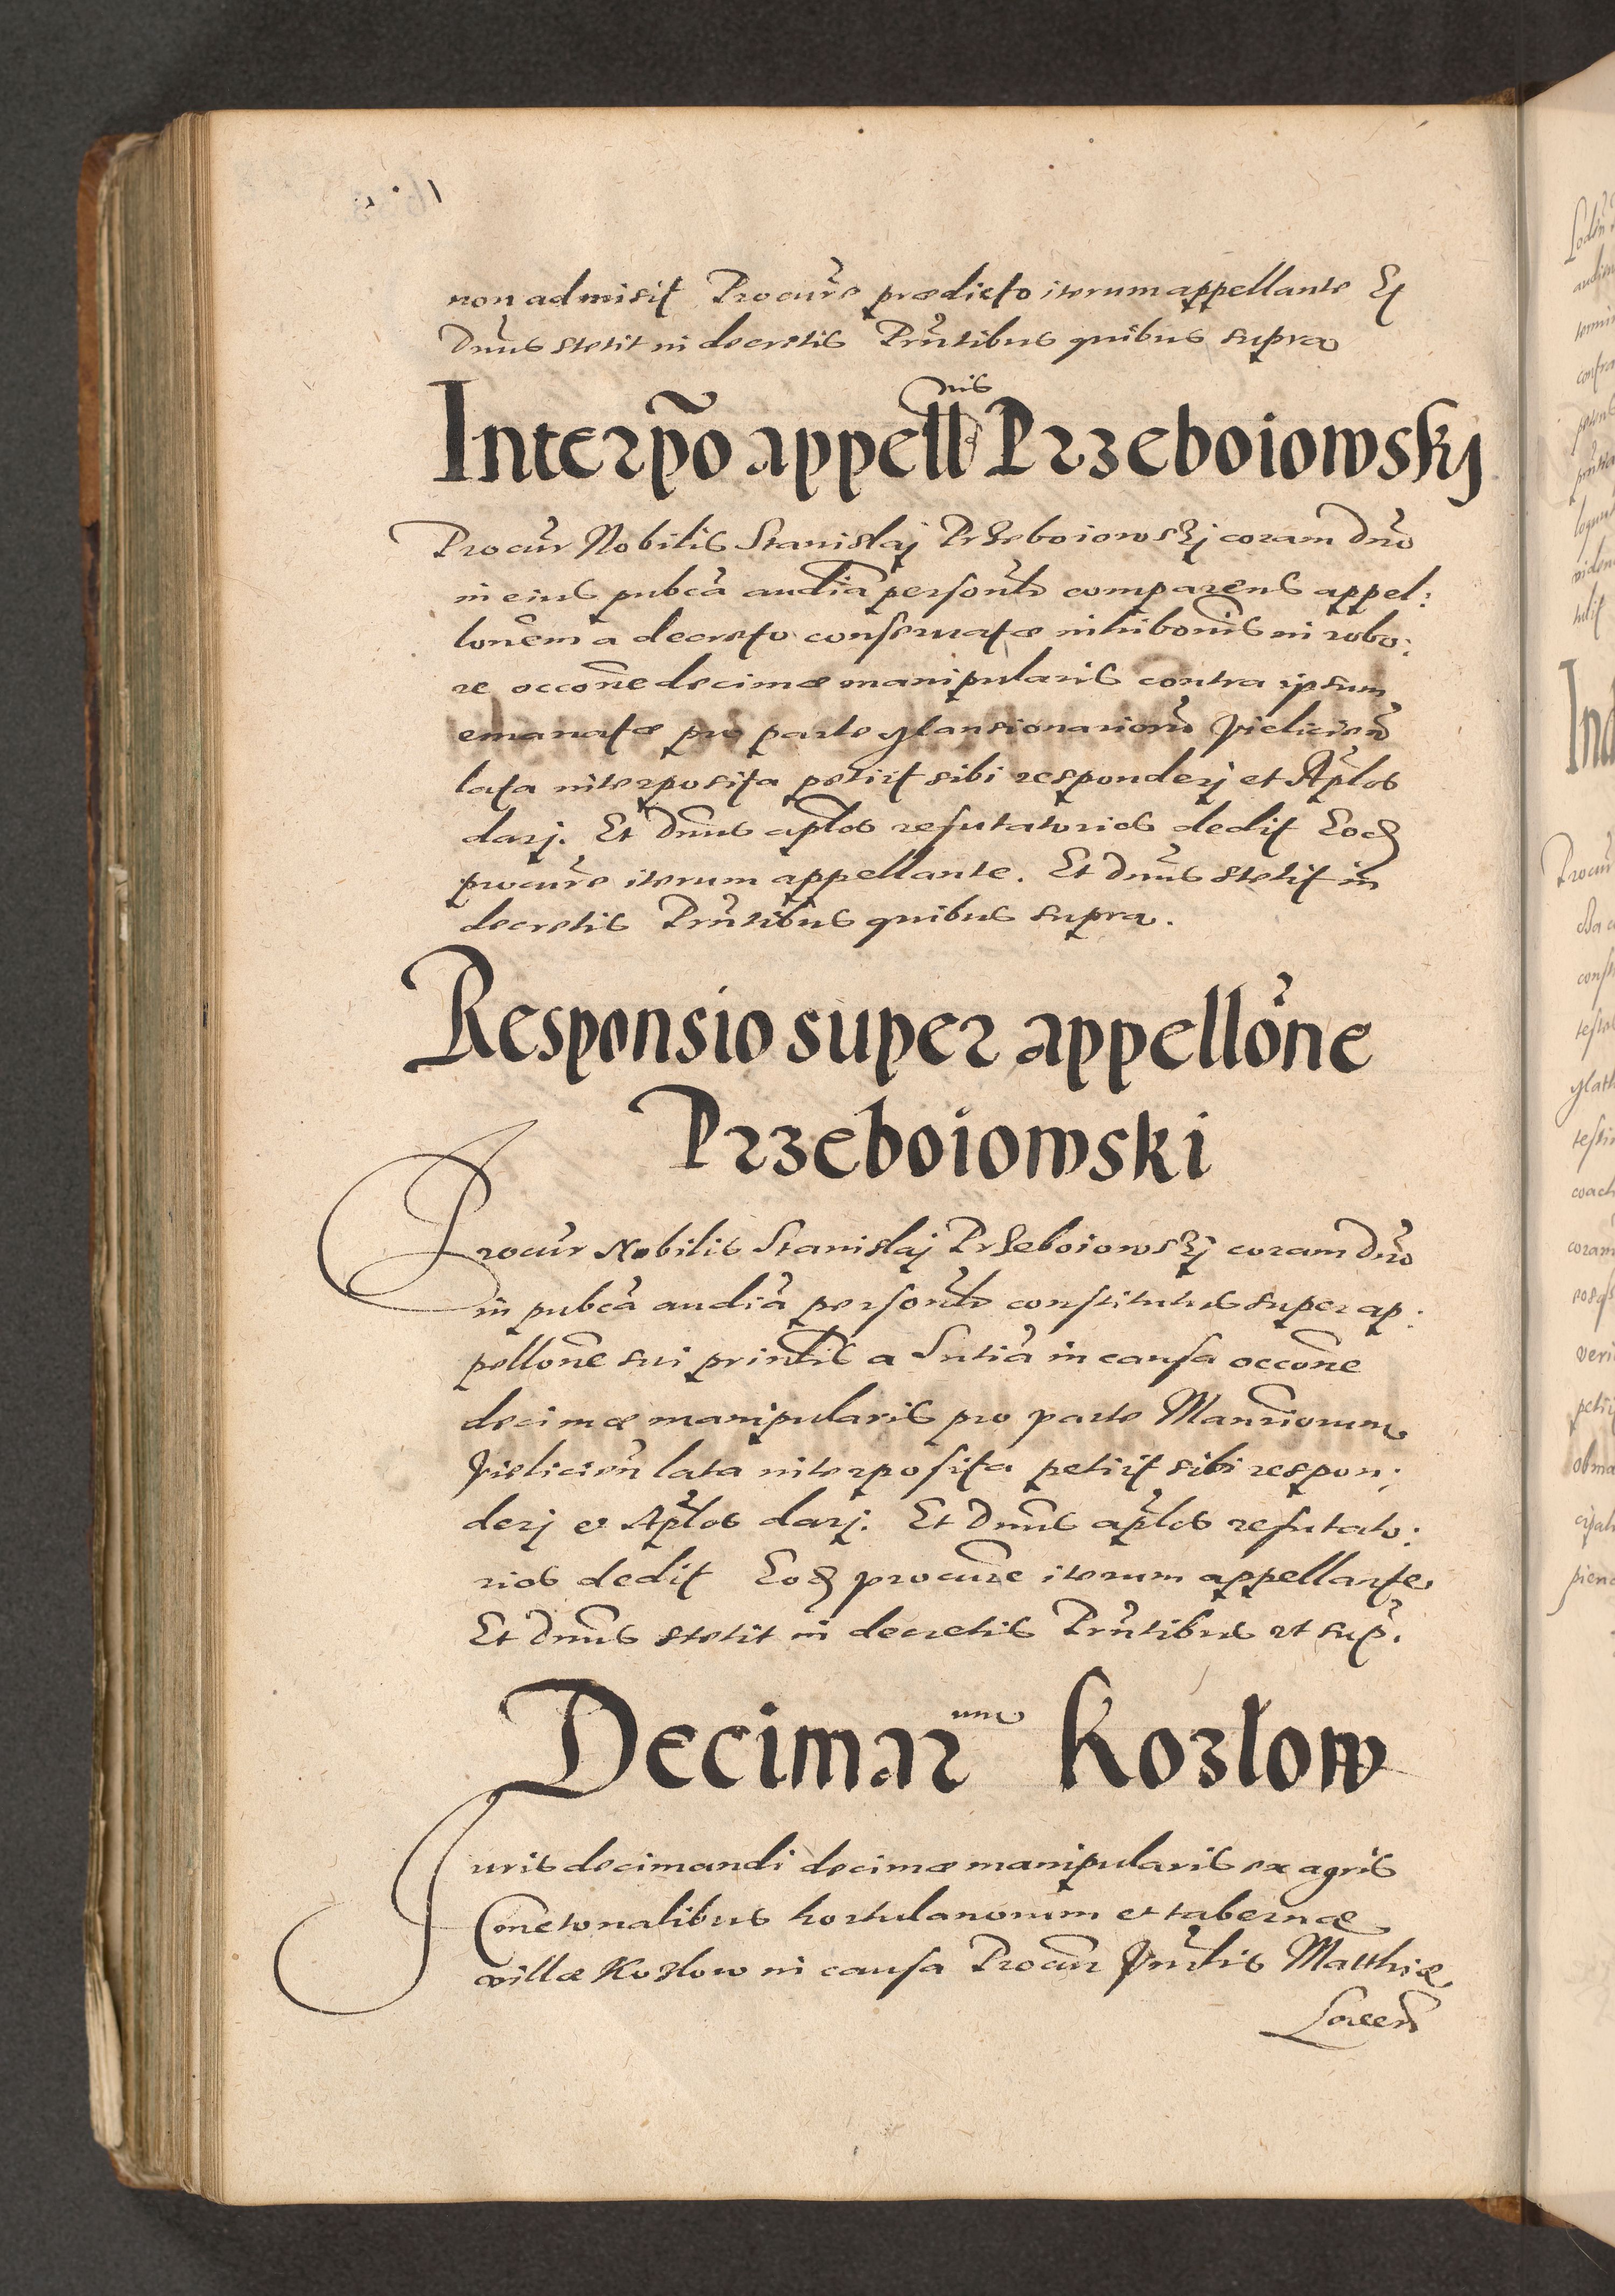 non admisit Procure prædicto iterum appellante Et
Dnus stetit in decretis Prntibus quibus supra
Interpo appellnis Przeboiowskj
Procur Nobilis Stanislaj Przeboiowskj coram Dno
in eius pubca audia personlr comparens appel:
lonem a decreto conservatæ inhibonis in robo:
re occone decimæ manipularis contra ipsum
emanatæ pro parte Mansionariorum Vielicien
lata interposita petiit sibi responderj et Aplos
darj. Et Dnus aplos refutatorios dedit Eod
procure iterum appellante. Et Dnus stetit in
decretis Prntibus quibus supra.
Responsio super appellone
Przeboiowski
Procur Nobilis Stanislaj Przeboiowskj coram Dno
in pubca audia personlr constitutus super ap:
pellone sui prinlis a Sntia in causa occone
decimæ manipularis pro parte Mansriorum
Vielicien lata interposita petiit sibi respon:
derj et Aplos darj. Et Dnus aplos refutato:
rios dedit Eod procure iterum appellante
Et Dnus stetit in decretis Prntibus ut sup.
Decimarum Kozlow
Juris decimandi decimæ manipularis ex agris
Cmetonalibus hortulanorum et tabernæ
villæ Kozlow in causa Procur Vnrlis Matthiæ